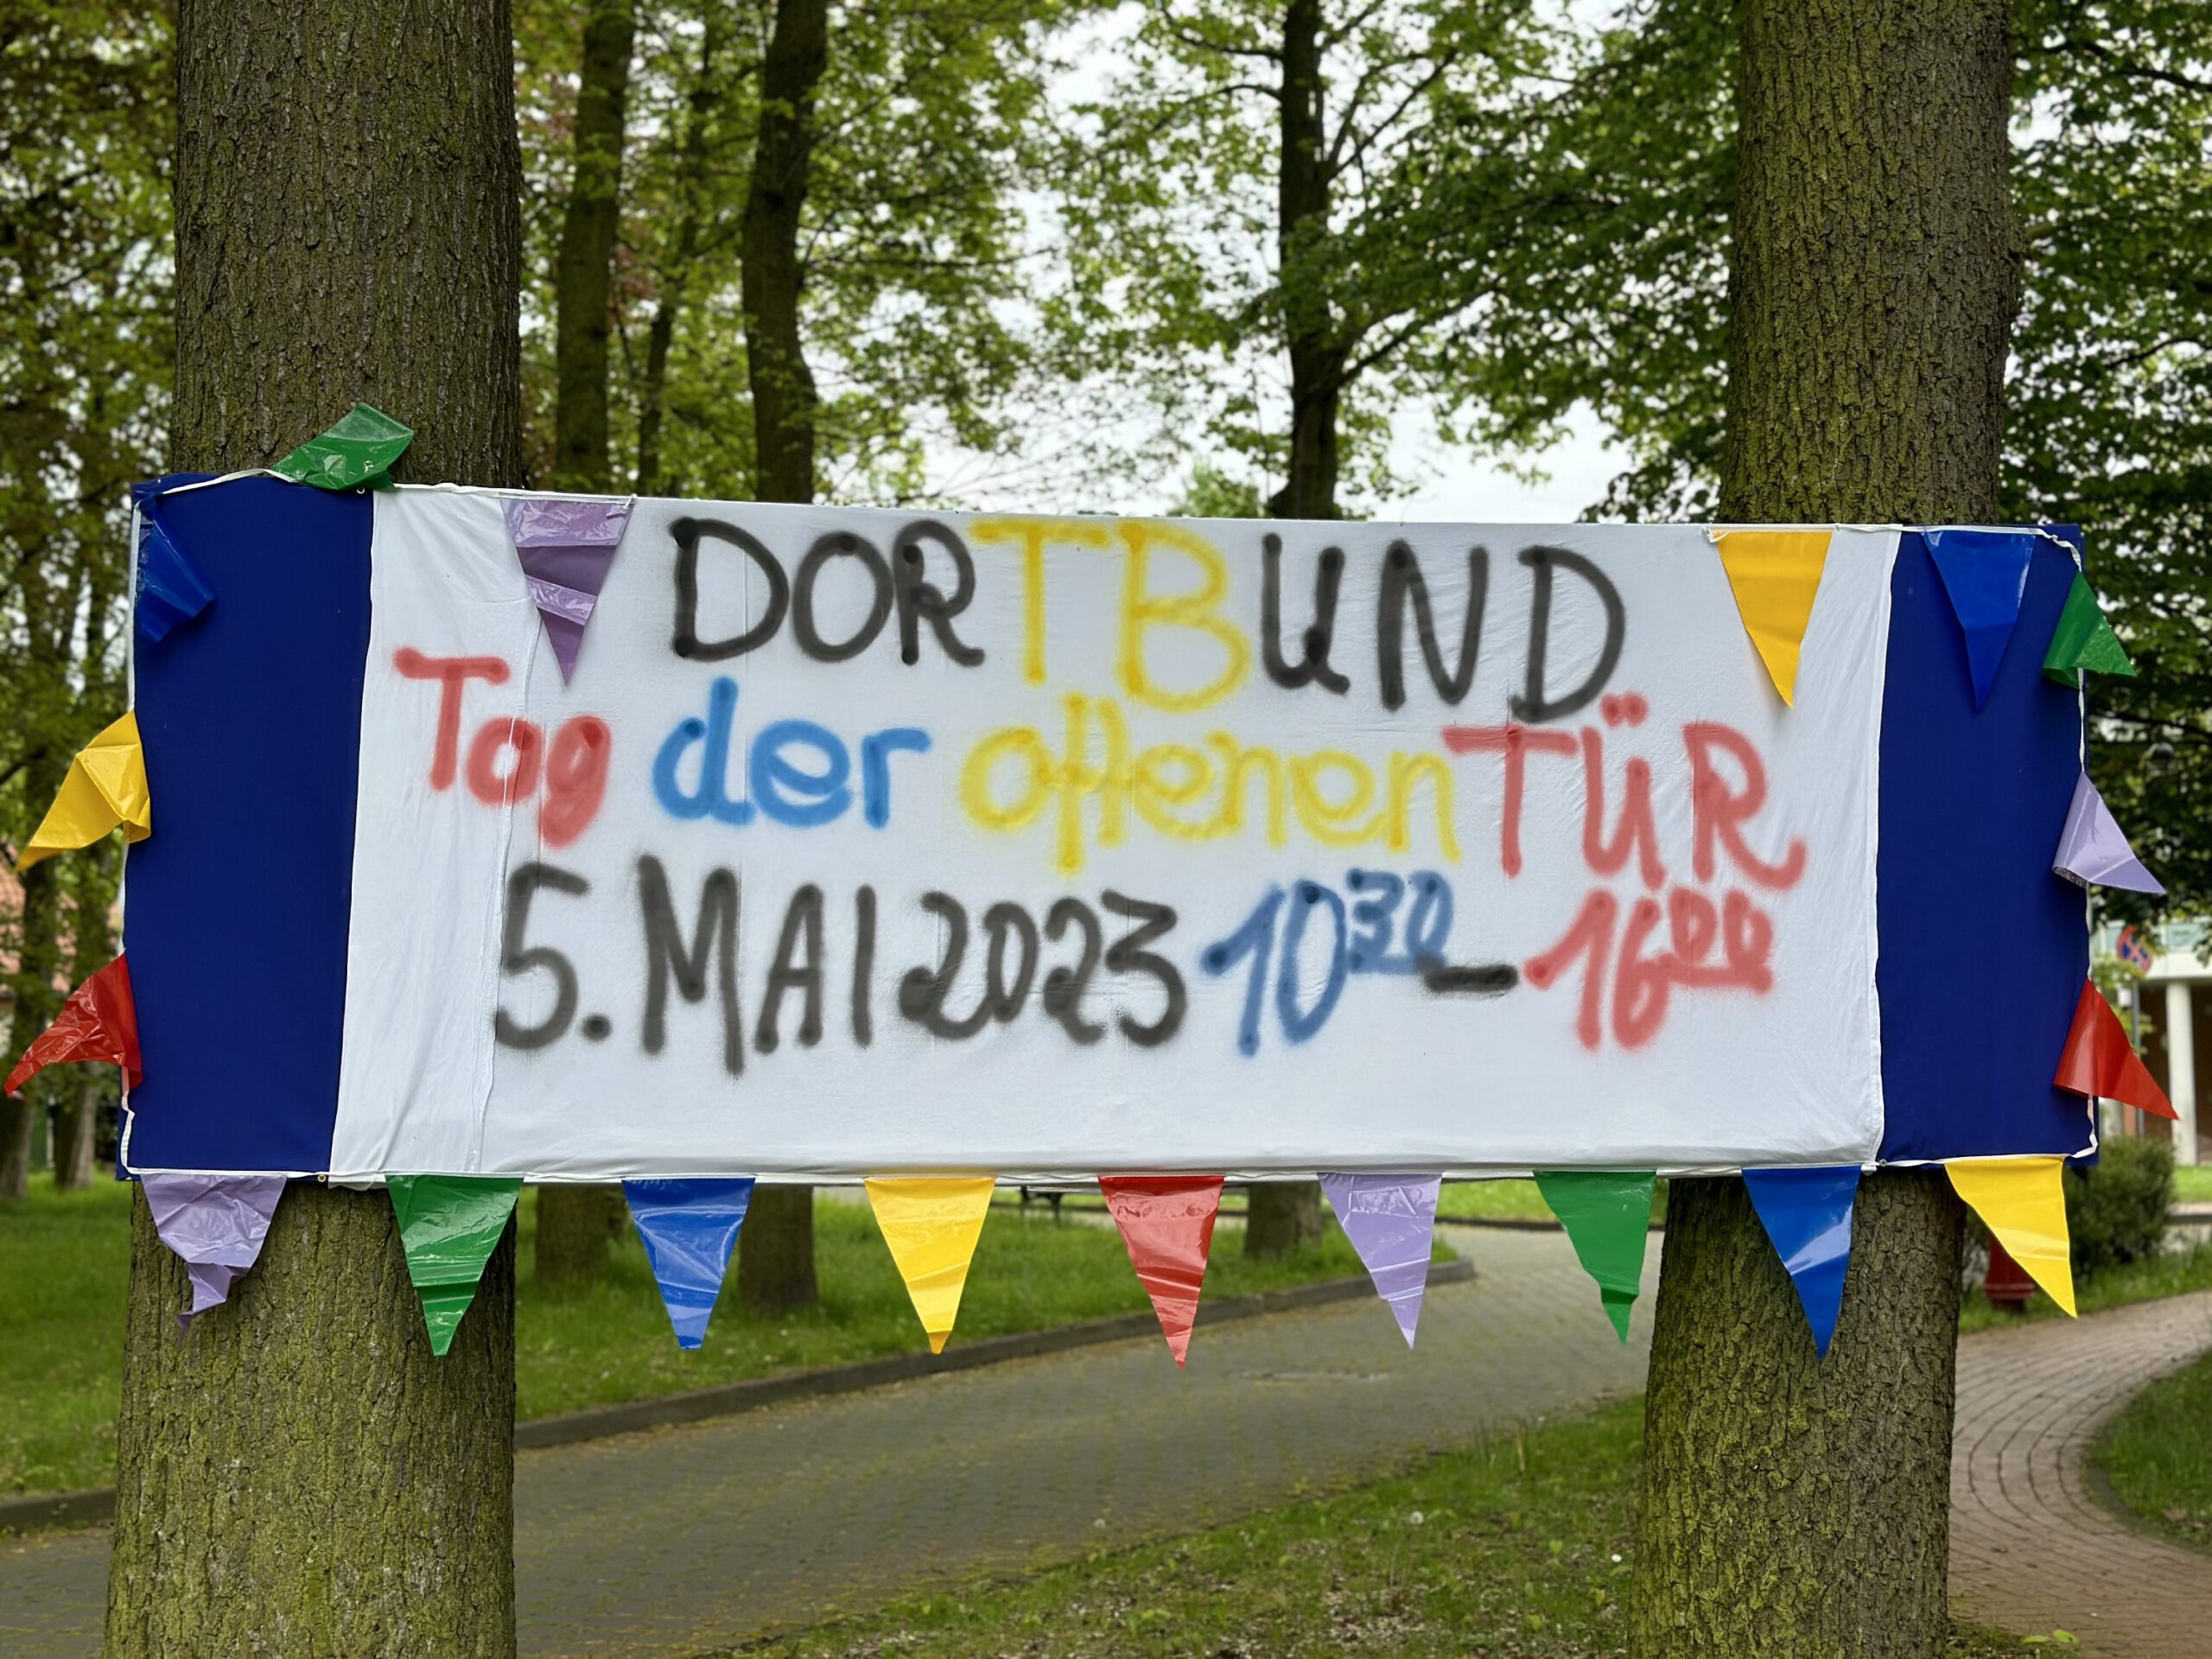 DORTBUND
Tag der offenen TÜR
5. MAI 2023 10³⁰ – 16⁰⁰